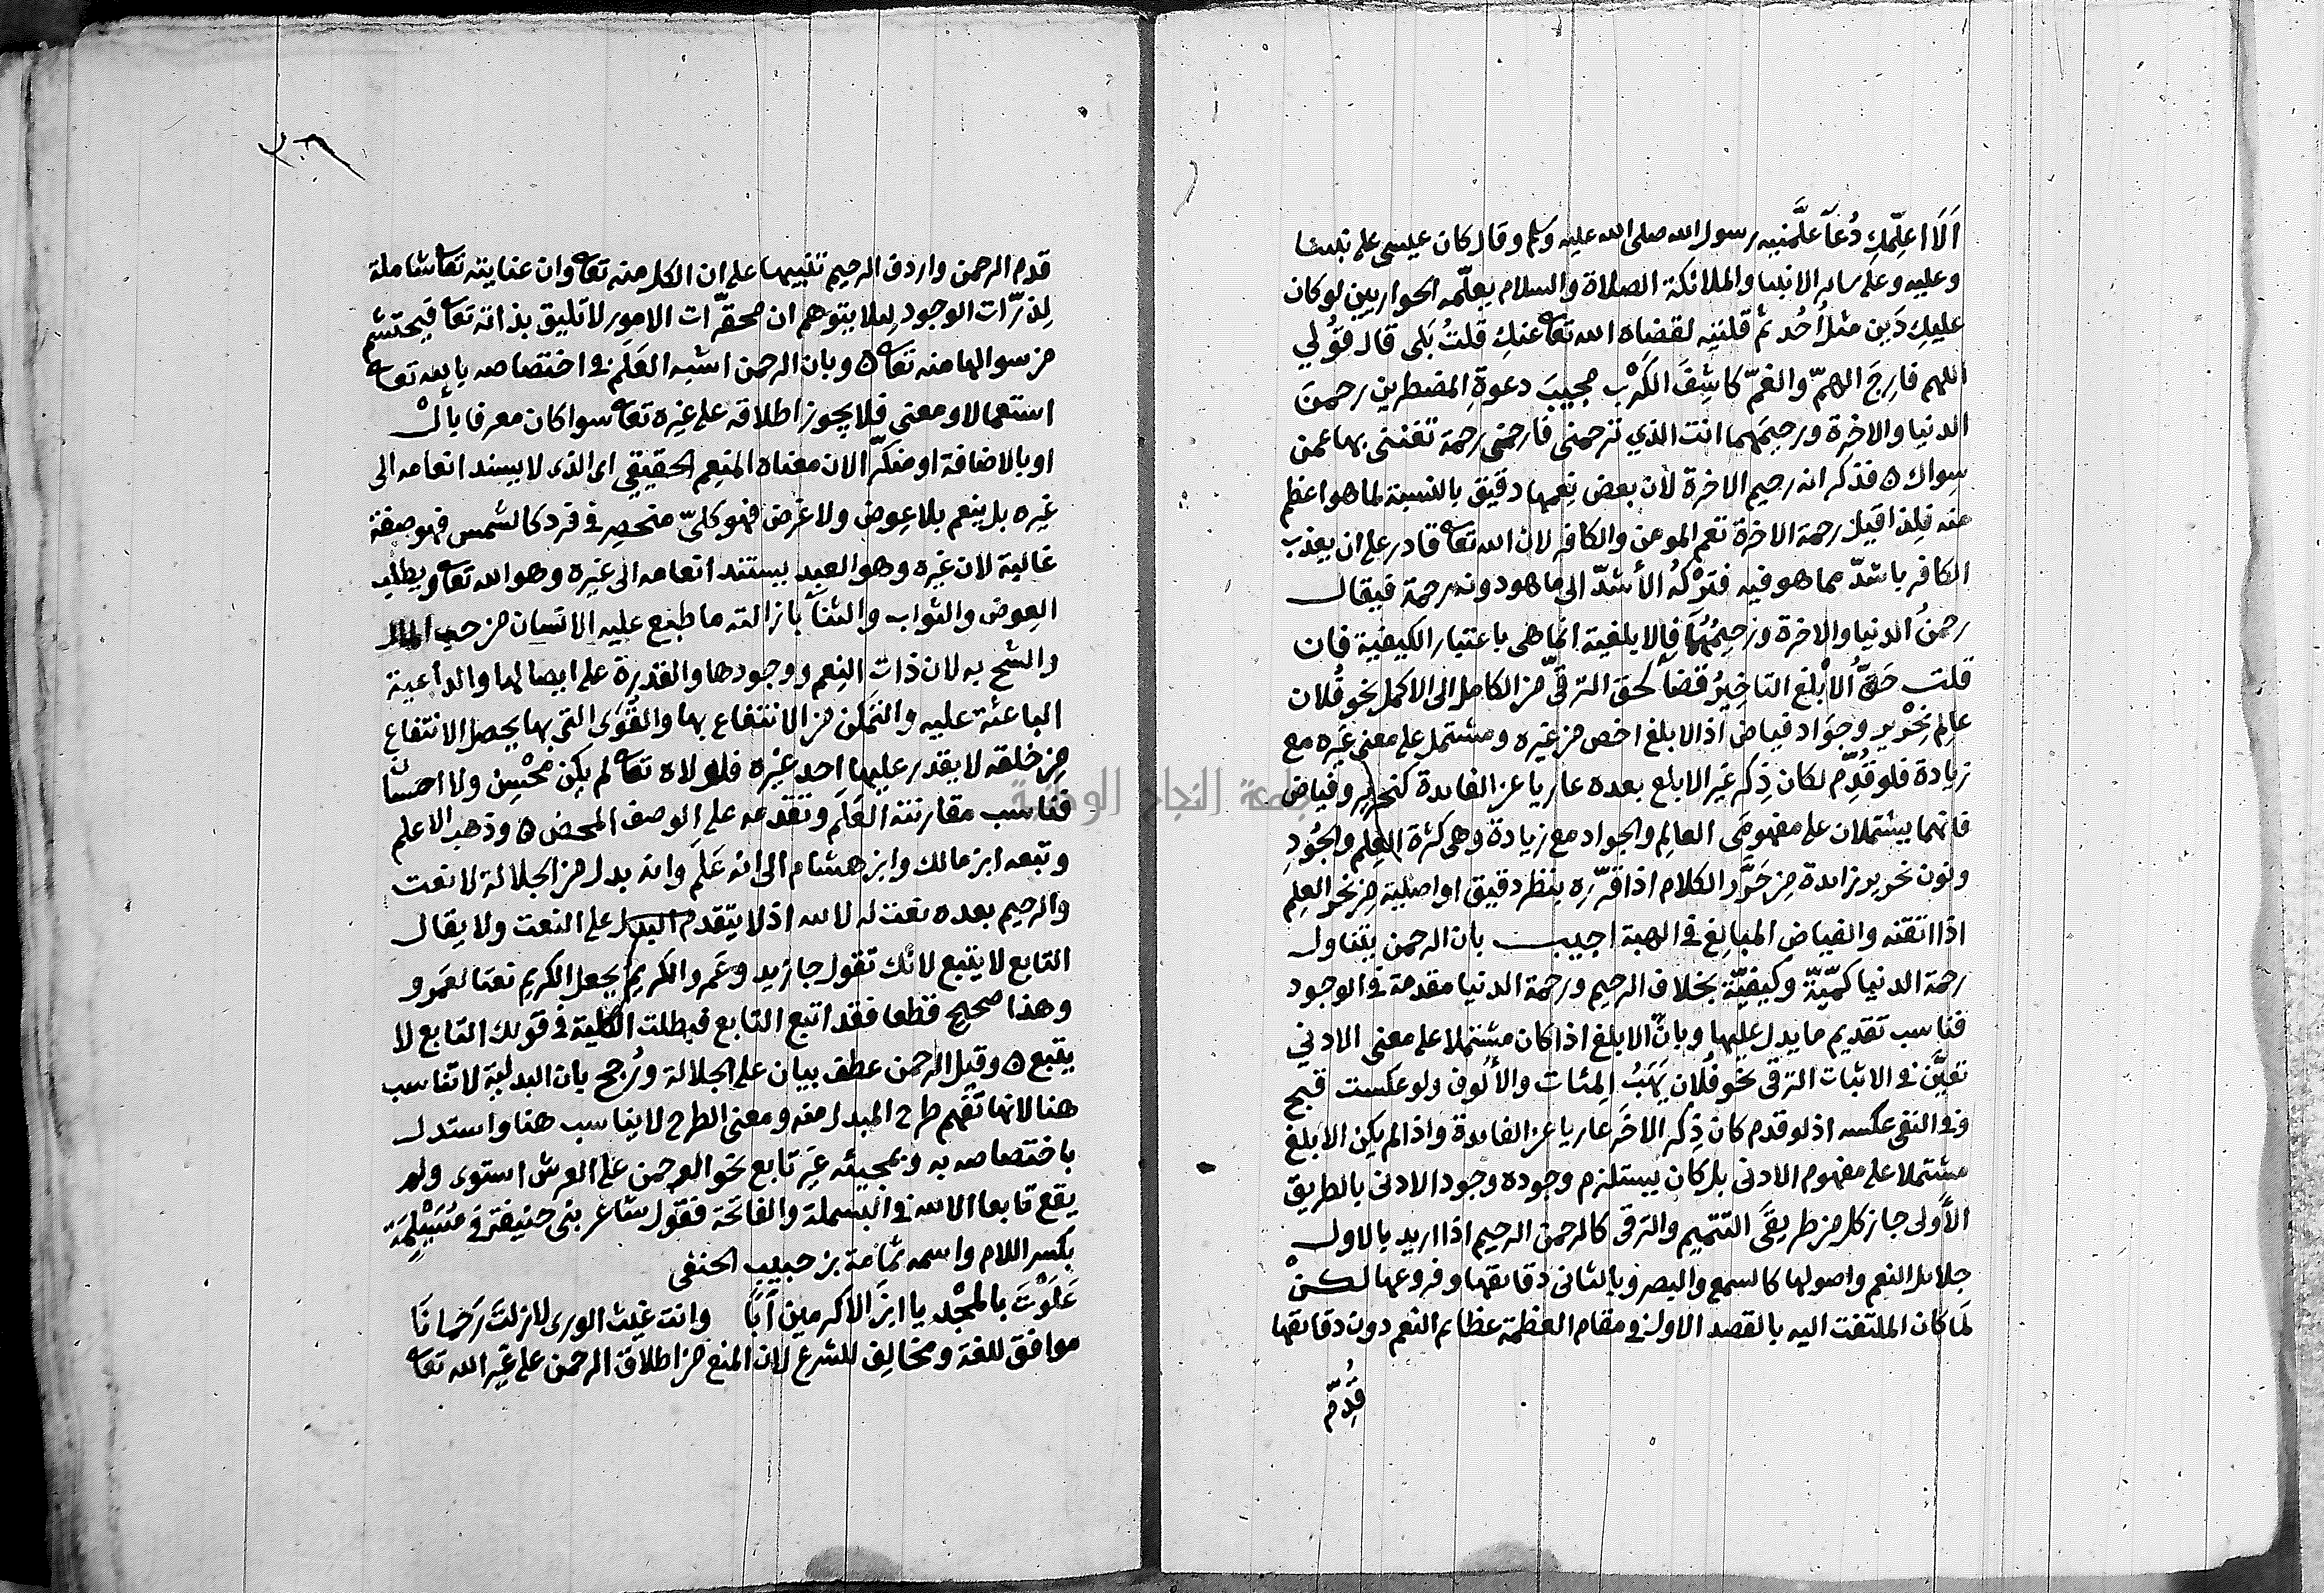 اَلَا اعلّمكِ دُعآً علَّمَنِيه رسول الله صلى الله عليه وسلم وقال كان عيسى على نبينا
وعليه وعلى ساير الانبيا والملائكة الصلاة والسلام يعلّمه الحواريين لو كان
عليكِ دَين مثلُ اُحُد ثم قلتيه لقضاه الله تعا عنكِ قلتُ بَلى قال قُولي
اللهم فارِجَ الهمّ والغمّ كاشِفَ الكَرْب مجيبَ دعوةِ المضطرين رحمنَ
الدنيا والاخرة ورحيمَهما انت الذي ترحمنى فارحمنى رحمة تغننى بها عمن
سِواك ه فذكر انه رحيم الاخرة لان بعض نِعمها دقيق بالنسبة لما هو اعظم
منه فلِذا قيل رحمة الاخرة تعم المومن والكافر لان الله تعا قادر على ان يعذب
الكافر باشدّ مما هو فيه فتَرْكُه الأشدّ الى ما هو دونه رحمة فيقال
رحمنُ الدنيا والاخرة ورحيمُهُما فالابلغية انما هى باعتبار الكيفية فان
قلت حَقُّ الأبْلغ التاخِيرُ قضآً لحق الترقّى من الكامل الى الاكمل نحو فُلان
عالم نِحْرير وجوَاد فياض اذ الابلغ اخص من غيره ومشتمل على معنى غيره مع
زيادة فلو قُدِّم لكان ذِكر غير الابلغ بعده عاريا عن الفايدة كنحرير وفياض
فانهما يشتملان على مفهومَى العالم والجواد مع زيادة وهى كثرة العِلم والجُودِ
ونون نحرير زايدة مِن حَرَّر الكلام اذا قرّره بنظر دقيق او اصلية مِن نحر العِلم
اذا اتقنه والفياض المبالغ فى الهبة اجيب بان الرحمن يتناول
رحمة الدنيا كمّيّة وكيفيّة بخلاف الرحيم ورحمة الدنيا مقدمة فى الوجود
فناسب تقديم ما يدل عليها وبانّ الابلغ اذا كان مشتملا على معنى الادني
تعيَّن فى الاثبات الترقى نحو فُلان يَهَبُ المئات والأُلوف ولو عكست قبح
وفى النفى عكسه اذ لو قدم كان ذِكر الاخَر عاريا عن الفايدة واذا لم يكن الابلغ
مشتملا على مفهوم الادنى بل كان يستلزم وجوده وجود الادنى بالطريق
الأَولى جاز كل من طريقَى التتميم والترقى كالرحمن الرحيم اذا اريد بالاول
جلايل النعم واصولها كالسمع والبصر وبالثانى دقايقها وفروعها لكنْ
لَما كان الملتفت اليه بالقصد الاول فى مقام العظمة عظايم النعم دون دقايقها
قُدِّم
قدم الرحمن واردف الرحيم تنبيها على ان الكل منه تعا وان عنايته تعا شاملة
لِذرّات الوجود ليلا يتوهم ان محقّرات الامور لا تليق بذاته تعا فيحتشم
من سوالها منه تعا ه وبان الرحمن اشبه العَلَم فى اختصاصه بالله تعا
استعمالا ومعنى فلا يجوز اطلاقه على غيره تعا سوا كان معرفا بألْ
او بالاضافة او منكّرا لان معناه المنعِم الحقيقي اى الذى لا يسند انعامه الى
غيره بل ينعم بلا عِوض ولا غرض فهو كلىّ منحصر فى فرد كالشمس فهو صفة
غالبة لان غيره وهو العبد يستند انعامه الى غيره وهو الله تعا ويطلب
العِوض والثواب والثنآ بازالته ما طبع عليه الانسان من حب المال
والشح به لان ذات النِعم ووجودها والقدرة على ايصالها والداعية
الباعثة عليه والتمكن من الانتفاع بها والقُوَى التى بها يحصل الانتفاع
مِن خلقه لا يقدر عليها احد غيره فلولاه تعا لم يكن محْسِن ولا احسان
فناسب مقارنته العَلَم وتقدمه على الوصف المحض ه وذهب الاعلم
وتبعه ابن مالك وابن هشام الى انه عَلَم وانه بدل من الجلالة لا نعت
والرحيم بعده نعت له لا لله اذ لا يتقدم البدل على النعت ولا يقال
التابع لا يتبع لانك تقول جا زيد وعَمرو الكريم بجعل الكريم نعتا لعَمرو
وهذا صحيح قطعا فقد اتبع التابع فبطلت الكلية فى قولك التابع لا
يتبع ه وقيل الرحمن عطف بيان على الجلالة ورُجح بان البدلية لا تناسب
هنا لانها تفهم طرح المبدل منه ومعنى الطرح لا يناسب هنا واستدل
باختصاصه به وبمجيئه غير تابع نحو الرحمن على العرش استوى ولم
يقع تابعا الا لله فى البسملة والفاتحة فقول شاعر بنى حنيفة فى مُسَيْلِمَة
بكسر اللام واسمه ثمامة بن حبيب الحنفى
عَلَوْتَ بالمَجْد يا ابنَ الاكرمين اَبًا وانت غيث الورى لا زلتَ رَحمانَا
موافق للغة ومخالف للشرع لان المنع من اطلاق الرحمن على غير الله تعا
جامعة النجاح الوطنية